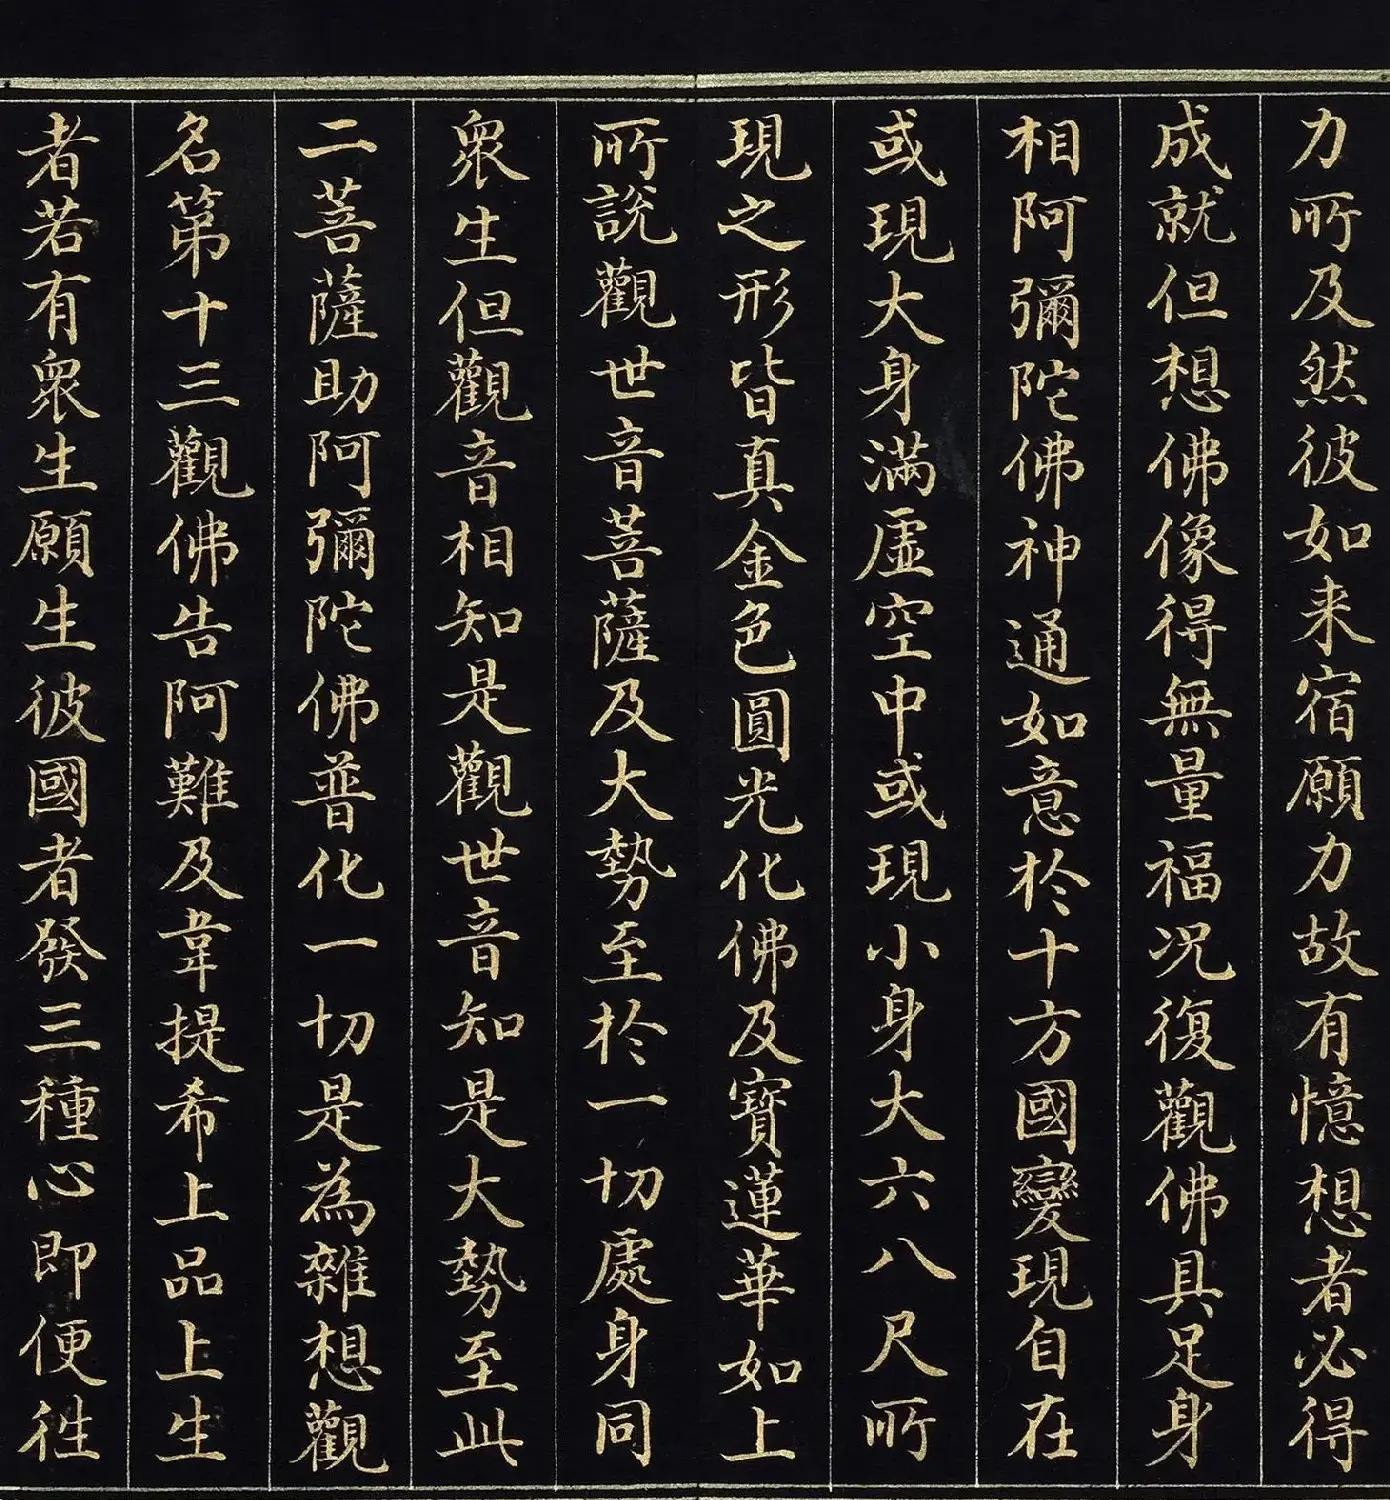 力所及然彼如来宿願力故有憶想者必得
成就但想佛像得無量福况復觀佛具足身
相阿彌陀佛神通如意於十方國變現自在
或現大身滿虛空中或現小身大六八尺所
現之形皆真金色圓光化佛及寶蓮華如上
所說觀世音菩薩及大勢至於一切處身同
衆生但觀音相知是觀世音知是大勢至此
二菩薩助阿彌陀佛普化一切是為雜想觀
名第十三觀佛告阿難及韋提希上品上生
者若有衆生願生彼國者發三種心即便徃